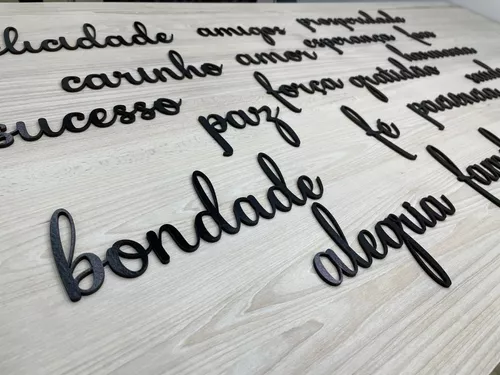 felicidade amigos prosperidade
carinho amor esperança
sucesso paz força gratidão harmonia
bondade fé
alegria